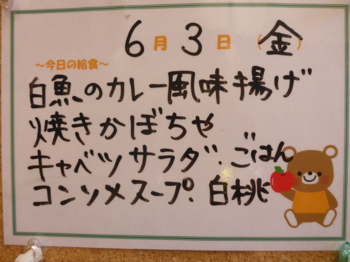 6月3日(金)
～今日の給食～
白魚のカレー風味揚げ
焼きかぼちゃ
キャベツサラダ.ごはん
コンソメスープ.白桃